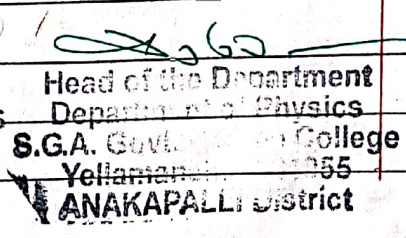 Head of the Department
Department of Physics
S.G.A. Govt. College
ANAKAPALLI District